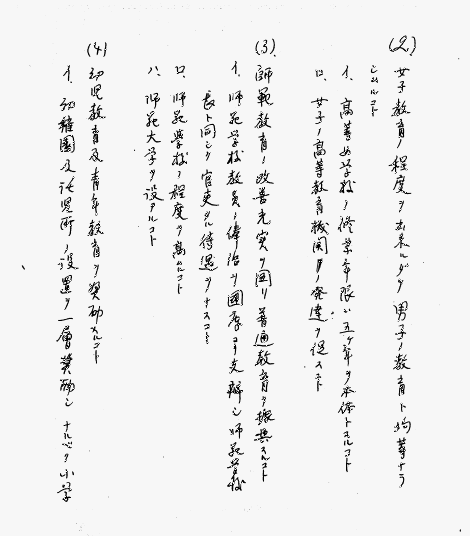 (2) 女子教育ノ程度ヲ出来ルダケ男子ノ教育ト均等ナラ
シムルコト
イ、高等女学校ノ修業年限ハ五ケ年ヲ本体トスルコト
ロ、女子ノ高等教育機関ノ発達ヲ促スコト
(3) 師範教育ノ改善充実ヲ図リ普通教育ヲ振興スルコト
イ、師範学校教員ノ俸給ヲ国庫ヨリ支辨シ師範学校
長ト同ジク官吏タル待遇ヲナスコト
ロ、師範学校ノ程度ヲ高ムルコト
ハ、師範大学ヲ設クルコト
(4) 幼児教育及青年教育ヲ奨励スルコト
イ、幼稚園及託児所ノ設置ヲ一層奨励シナルベク小学